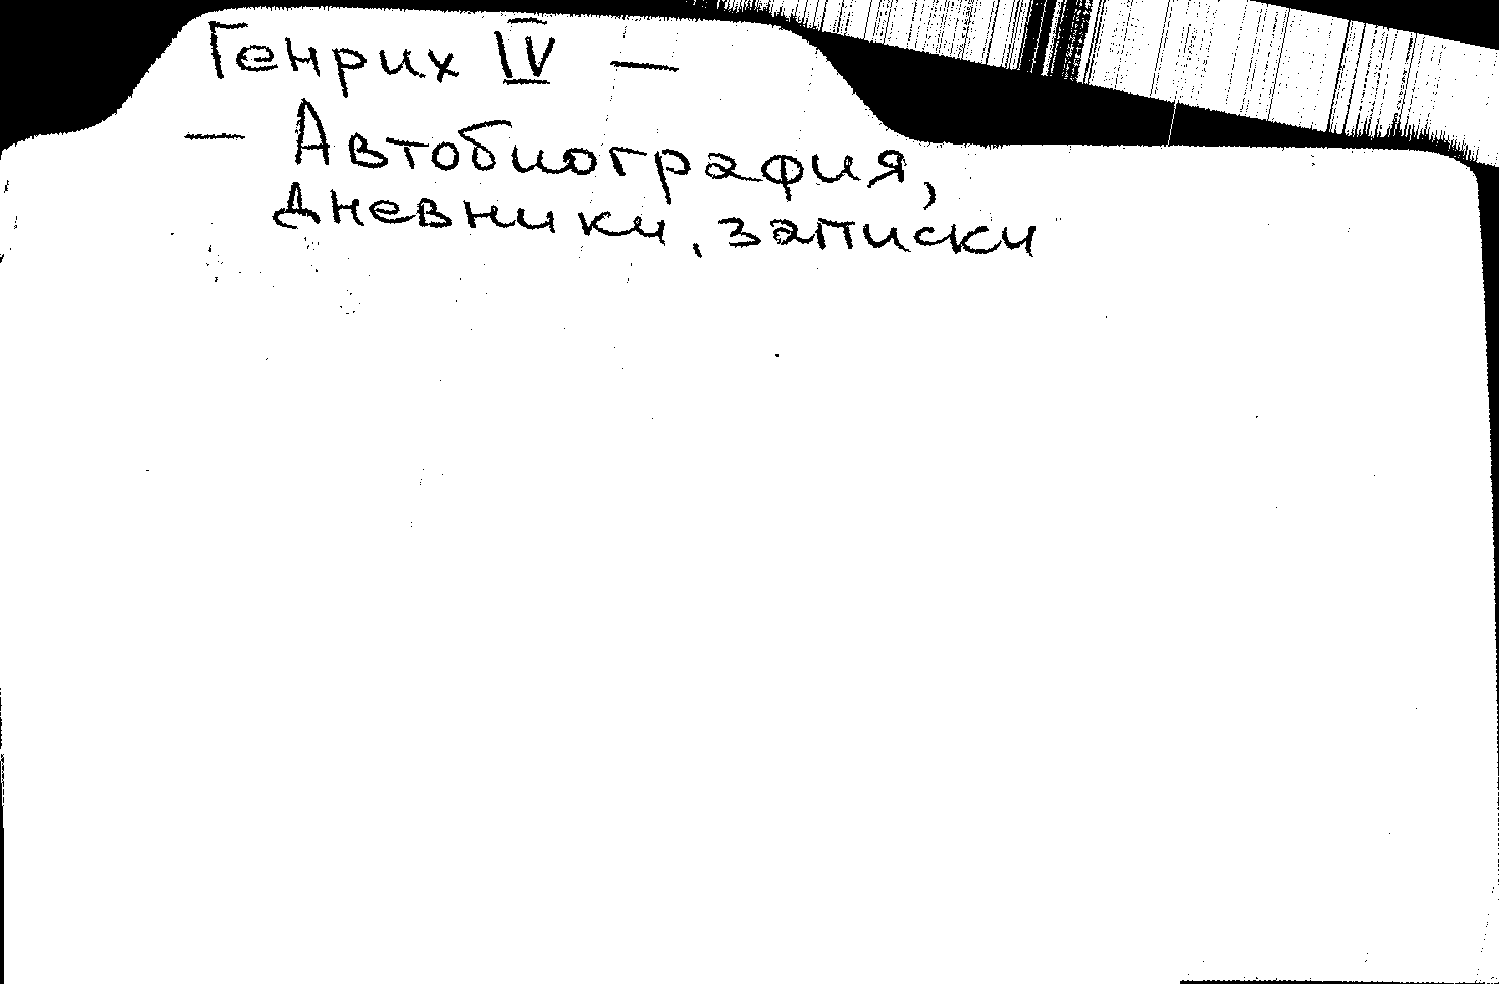 Генрих IV —
— Автобиография,
дневники, записки